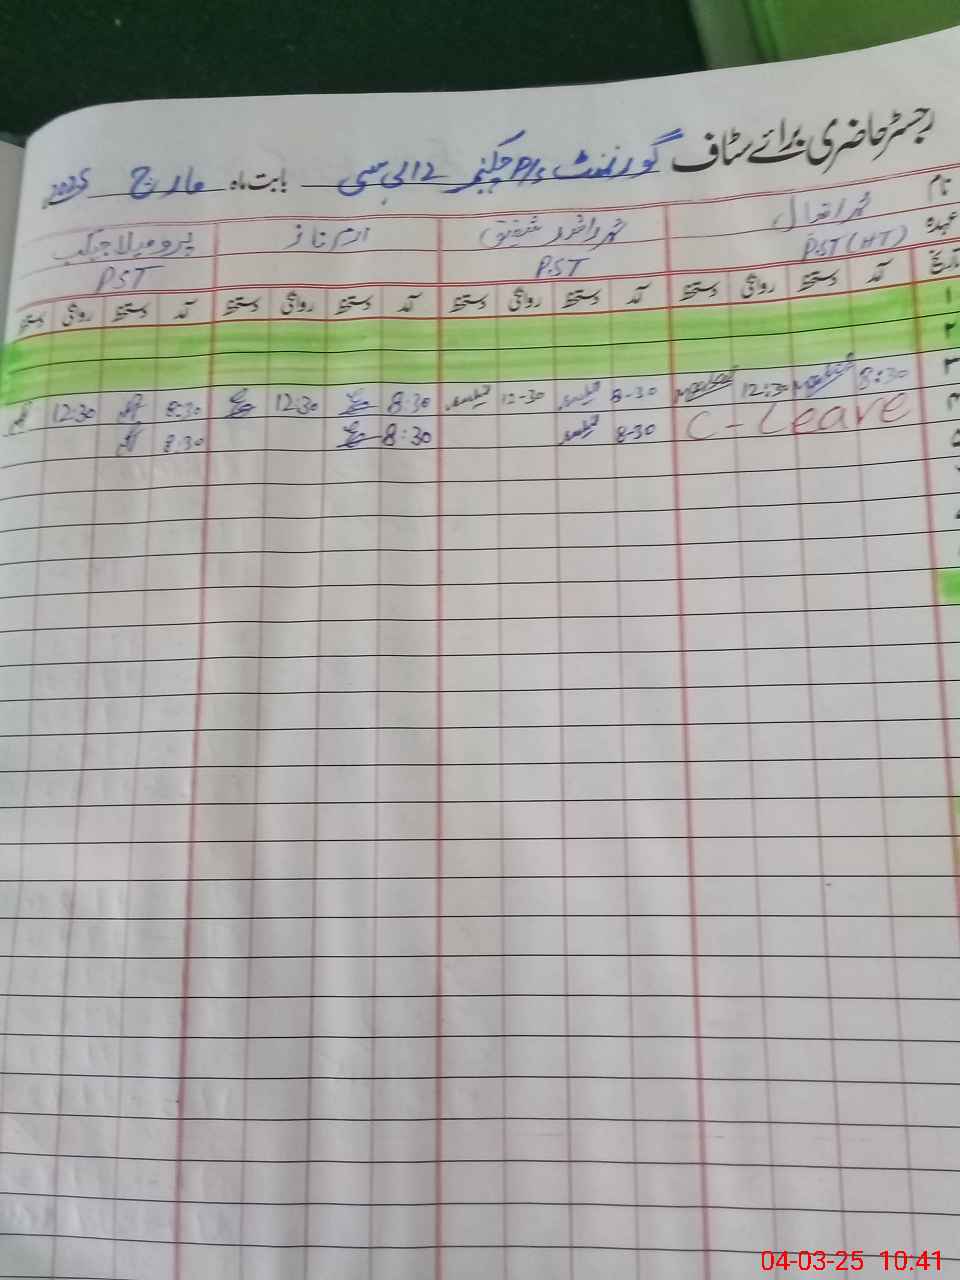 رجسٹر حاضری برائے سٹاف گورنمنٹ P/s چکنمبر 12 بی سی بابت ماہ مارچ 2025
نام محمد افضال محمد راشد شفیق ارم ناز پرومیلا جیکب
عہدہ P.S.T (H T) P.S.T P.S.T
تاریخ آمد دستخط روانگی دستخط آمد دستخط روانگی دستخط آمد دستخط روانگی دستخط آمد دستخط روانگی دستخط
۱
۲
۳ 8:30 12:30 8-30 12-30 8:30 12:30 8:30 12:30
۴ C - Leave 8-30 8:30 8:30
۵
04-03-25 10.41